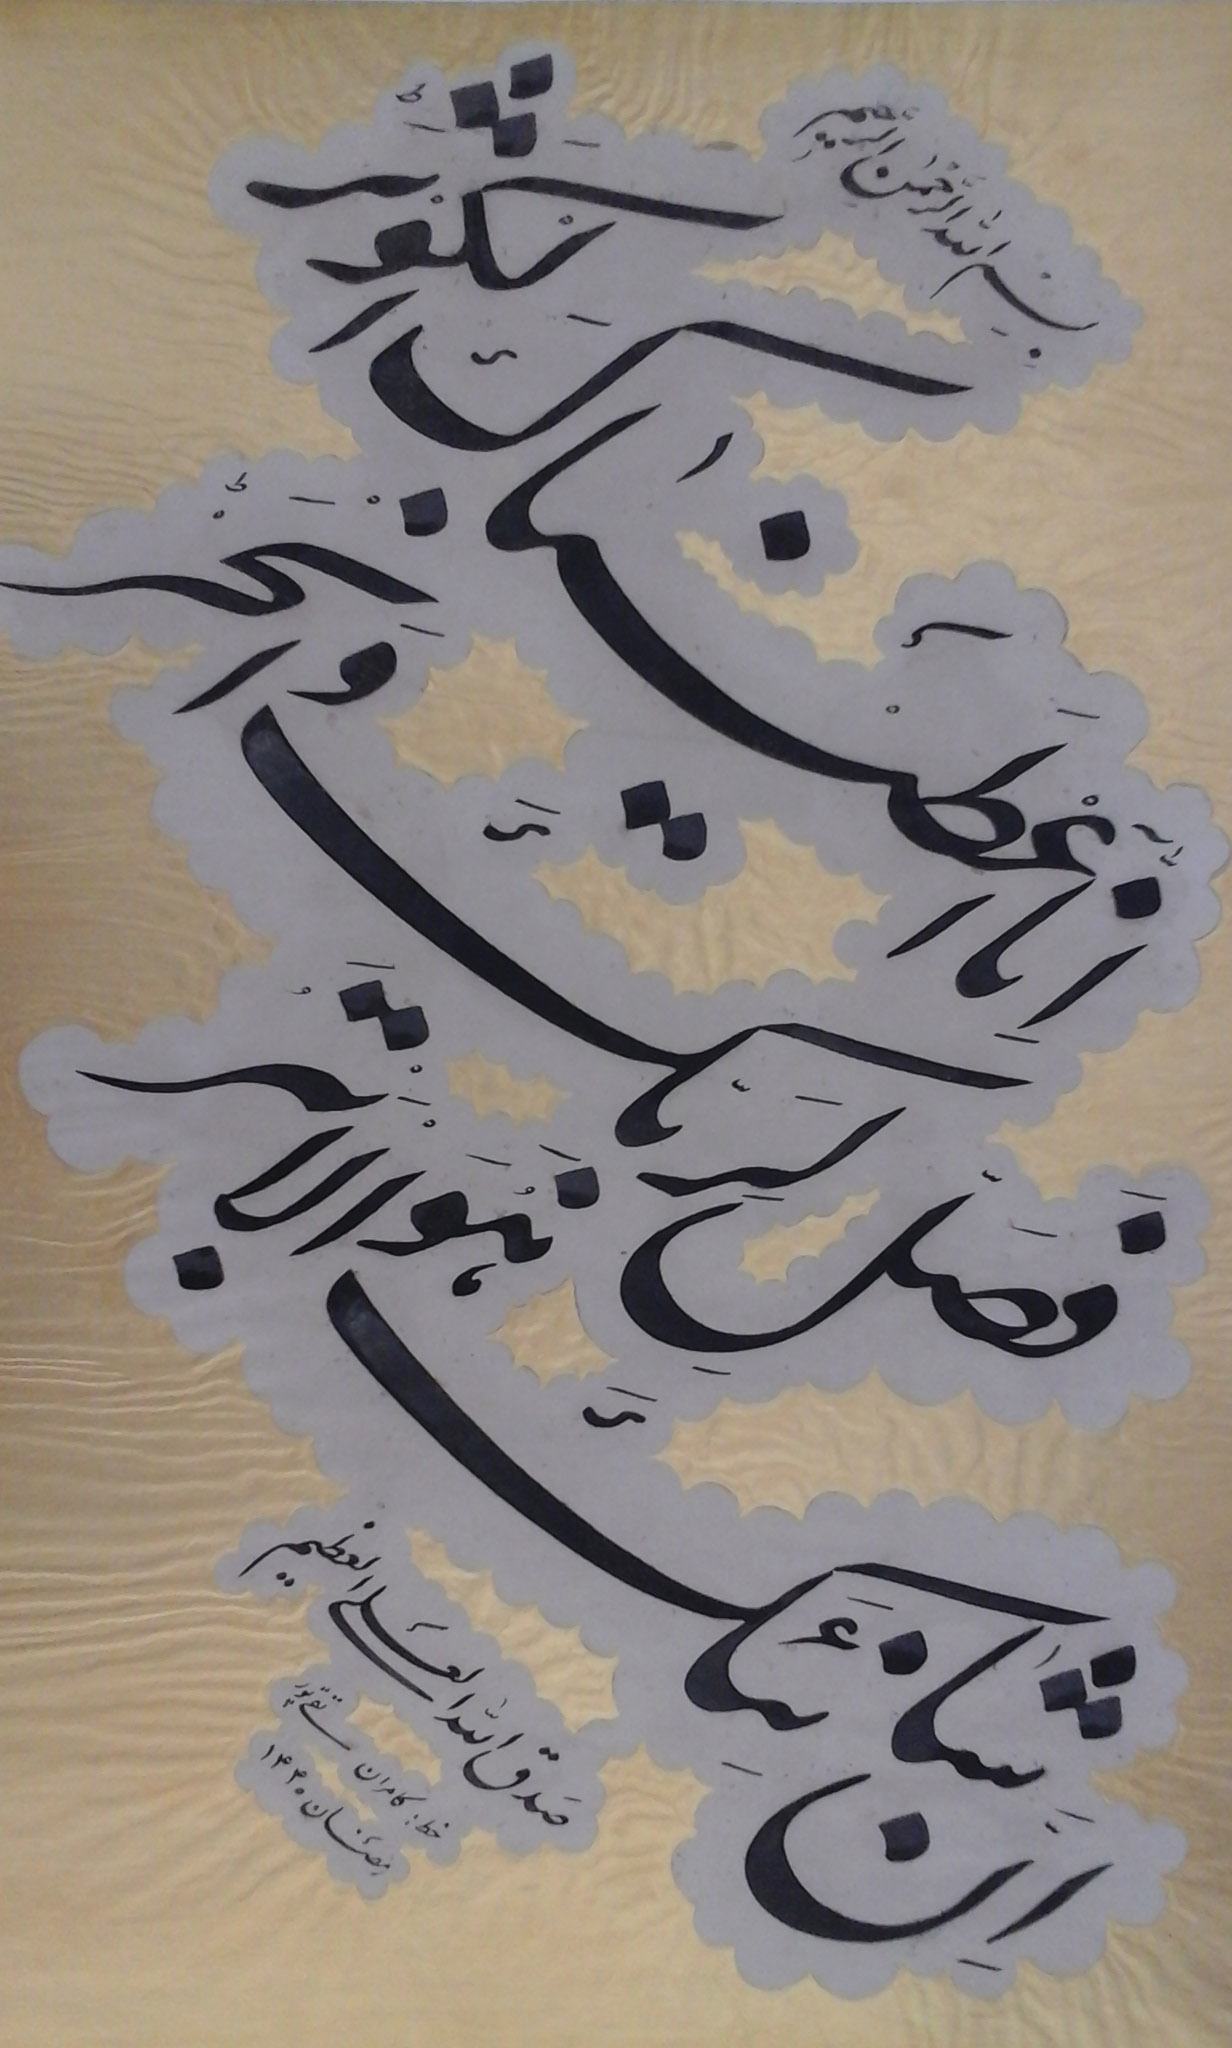 بِسْمِ اللهِ الرَّحْمٰنِ الرَّحِیمِ
اِنَّآ اَعْطَیْنٰکَ الْکَوْثَرَ ط
فَصَلِّ لِرَبِّکَ وَانْحَرْ ط
اِنَّ شَانِئَکَ هُوَ الْاَبْتَرُ
صَدَقَ اللهُ الْعَلِیُّ الْعَظِیم
خط: کامران تقی پور
رمضان ۱۴۳۰